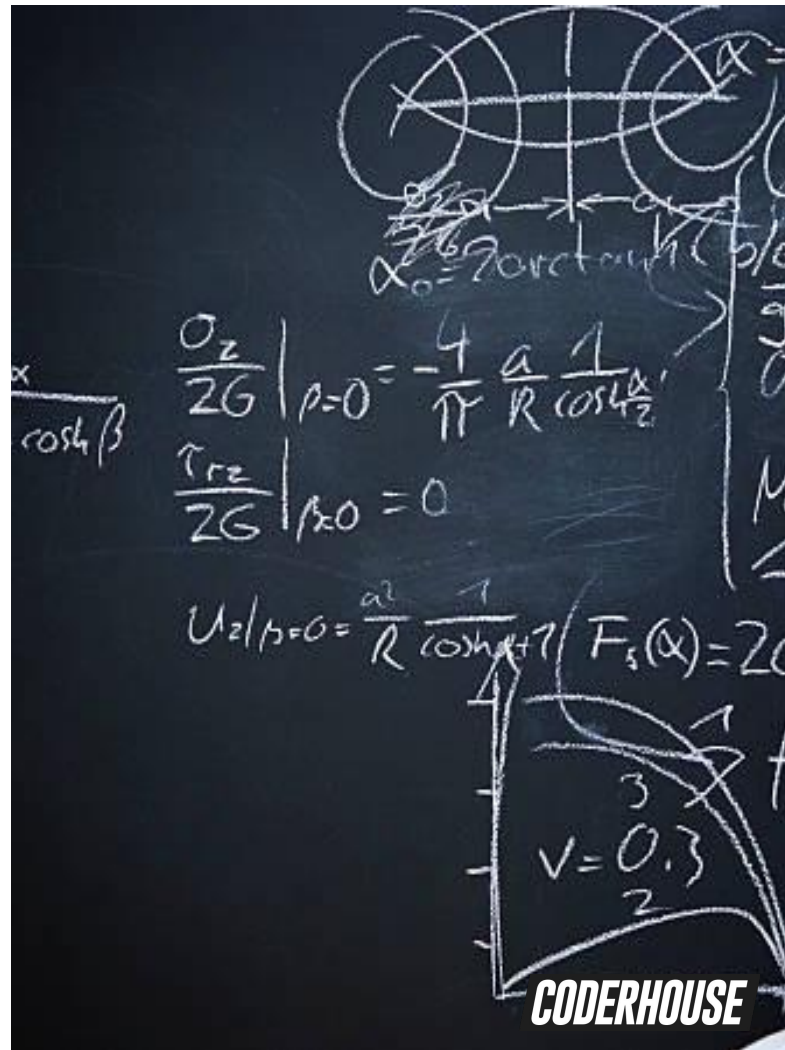 α =
α₀ = 2 arctanh ( b/
α
cosh β
σz / 2G |β=0 = - 4/π a/R 1/cosh α/2
τrz / 2G |β=0 = 0
Uz|β=0 = a²/R 1/cosh α+1
F₅(α) = 2
1
3
ν = 0.3
2
CODERHOUSE